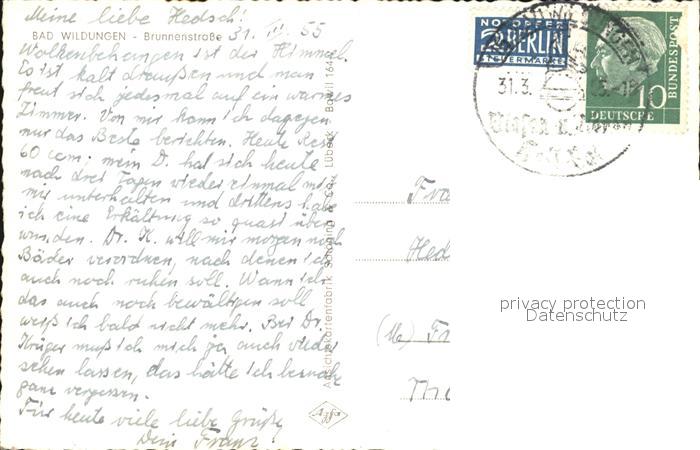 Meine liebe Hedsch!
BAD WILDUNGEN - Brunnenstraße 31. III. 55
Wolkenbehangen ist der Himmel.
Es ist kalt draußen und man
freut sich jedesmal auf ein warmes
Zimmer. Von mir kann ich dagegen
nur das Beste berichten. Heute Rest
60 ccm; mein D. hat sich heute
nach drei Tagen wieder einmal mit
mir unterhalten und drittens habe
ich eine Erkältung so quasi über
wunden. Dr. K. will mir morgen noch
Bäder verordnen, nach denen ich
auch noch ruhen soll. Wann ich
das auch noch bewältigen soll
weiß ich bald nicht mehr. Bei Dr.
Krüger muß ich mich ja auch wieder
sehen lassen, das hätte ich beinahe
ganz vergessen.
Für heute viele liebe Grüße
Dein Franz
Ansichtskartenfabrik Schöning & Co., Lübeck
Agfa
NOTOPFER
2 BERLIN
STEUERMARKE
31.3.
DEUTSCHE
BUNDESPOST
10
Fra
Hed
Fr
privacy protection
Datenschutz